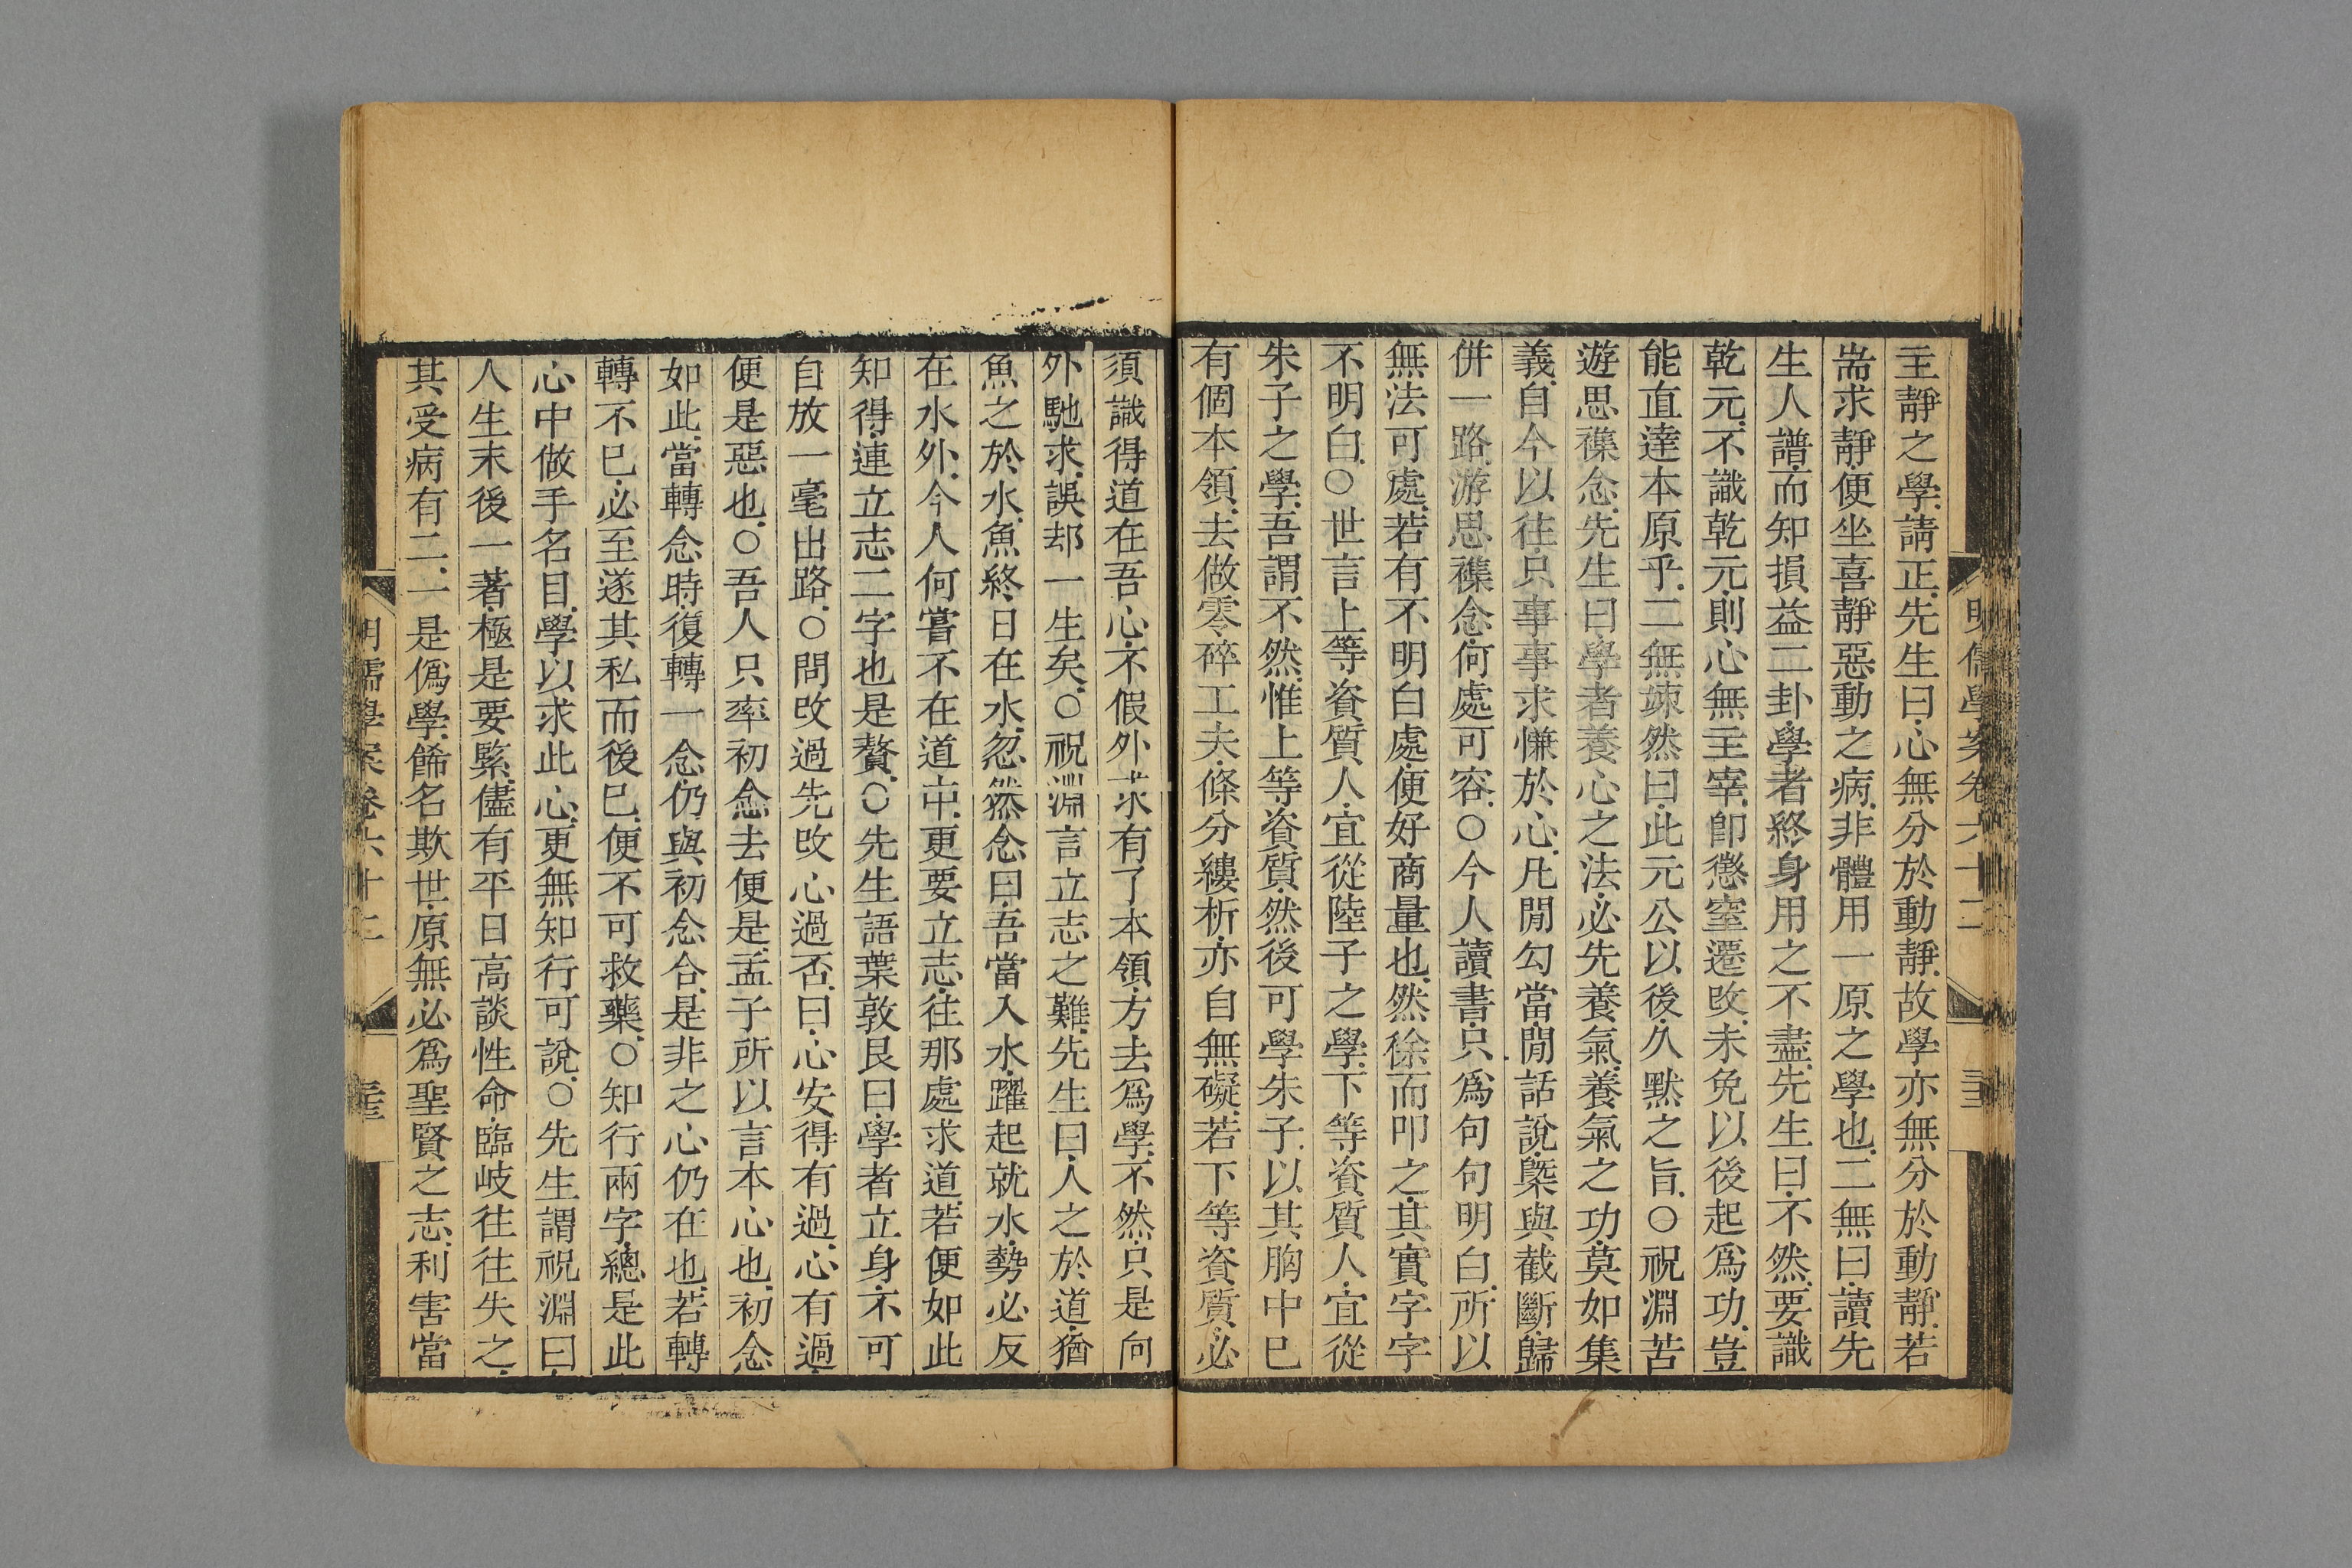 明儒學案卷六十二
主靜之學.請正.先生曰.心無分於動靜.故學亦無分於動靜.若
耑求靜.便坐喜靜惡動之病.非體用一原之學也.二無曰.讀先
生人譜.而知損益二卦.學者終身用之不盡.先生曰.不然.要識
乾元.不識乾元.則心無主宰.卽懲窒遷改.未免以後起爲功.豈
能直達本原乎.二無竦然曰.此元公以後.久默之旨.○祝淵苦
遊思襍念.先生曰.學者養心之法.必先養氣.養氣之功.莫如集
義.自今以往.只事事求慊於心.凡閒勾當.閒話說.槩與截斷.歸
併一路.游思襍念.何處可容.○今人讀書.只爲句句明白.所以
無法可處.若有不明白處.便好商量也.然徐而叩之.其實字字
不明白.○世言上等資質人.宜從陸子之學.下等資質人.宜從
朱子之學.吾謂不然.惟上等資質.然後可學朱子.以其胸中已
有個本領.去做零碎工夫.條分縷析.亦自無礙.若下等資質.必
須識得道在吾心.不假外求.有了本領.方去爲學.不然.只是向
外馳求.誤却一生矣.○祝淵言立志之難.先生曰.人之於道.猶
魚之於水.魚終日在水.忽然念曰.吾當入水.躍起就水.勢必反
在水外.今人何嘗不在道中.更要立志.往那處求道.若便如此
知得.連立志二字也是贅.○先生語葉敦艮曰.學者立身.不可
自放一毫出路.○問改過先改心過否.曰.心安得有過.心有過.
便是惡也.○吾人只率初念去便是.孟子所以言本心也.初念
如此.當轉念時.復轉一念.仍與初念合.是非之心仍在也.若轉
轉不已.必至遂其私而後已.便不可救藥.○知行兩字.總是此
心中做手名目.學以求此心.更無知行可說.○先生謂祝淵曰.
人生末後一著.極是要緊.儘有平日高談性命.臨岐往往失之.
其受病有二.一是僞學.飾名欺世.原無必爲聖賢之志.利害當
明儒學案卷六十二